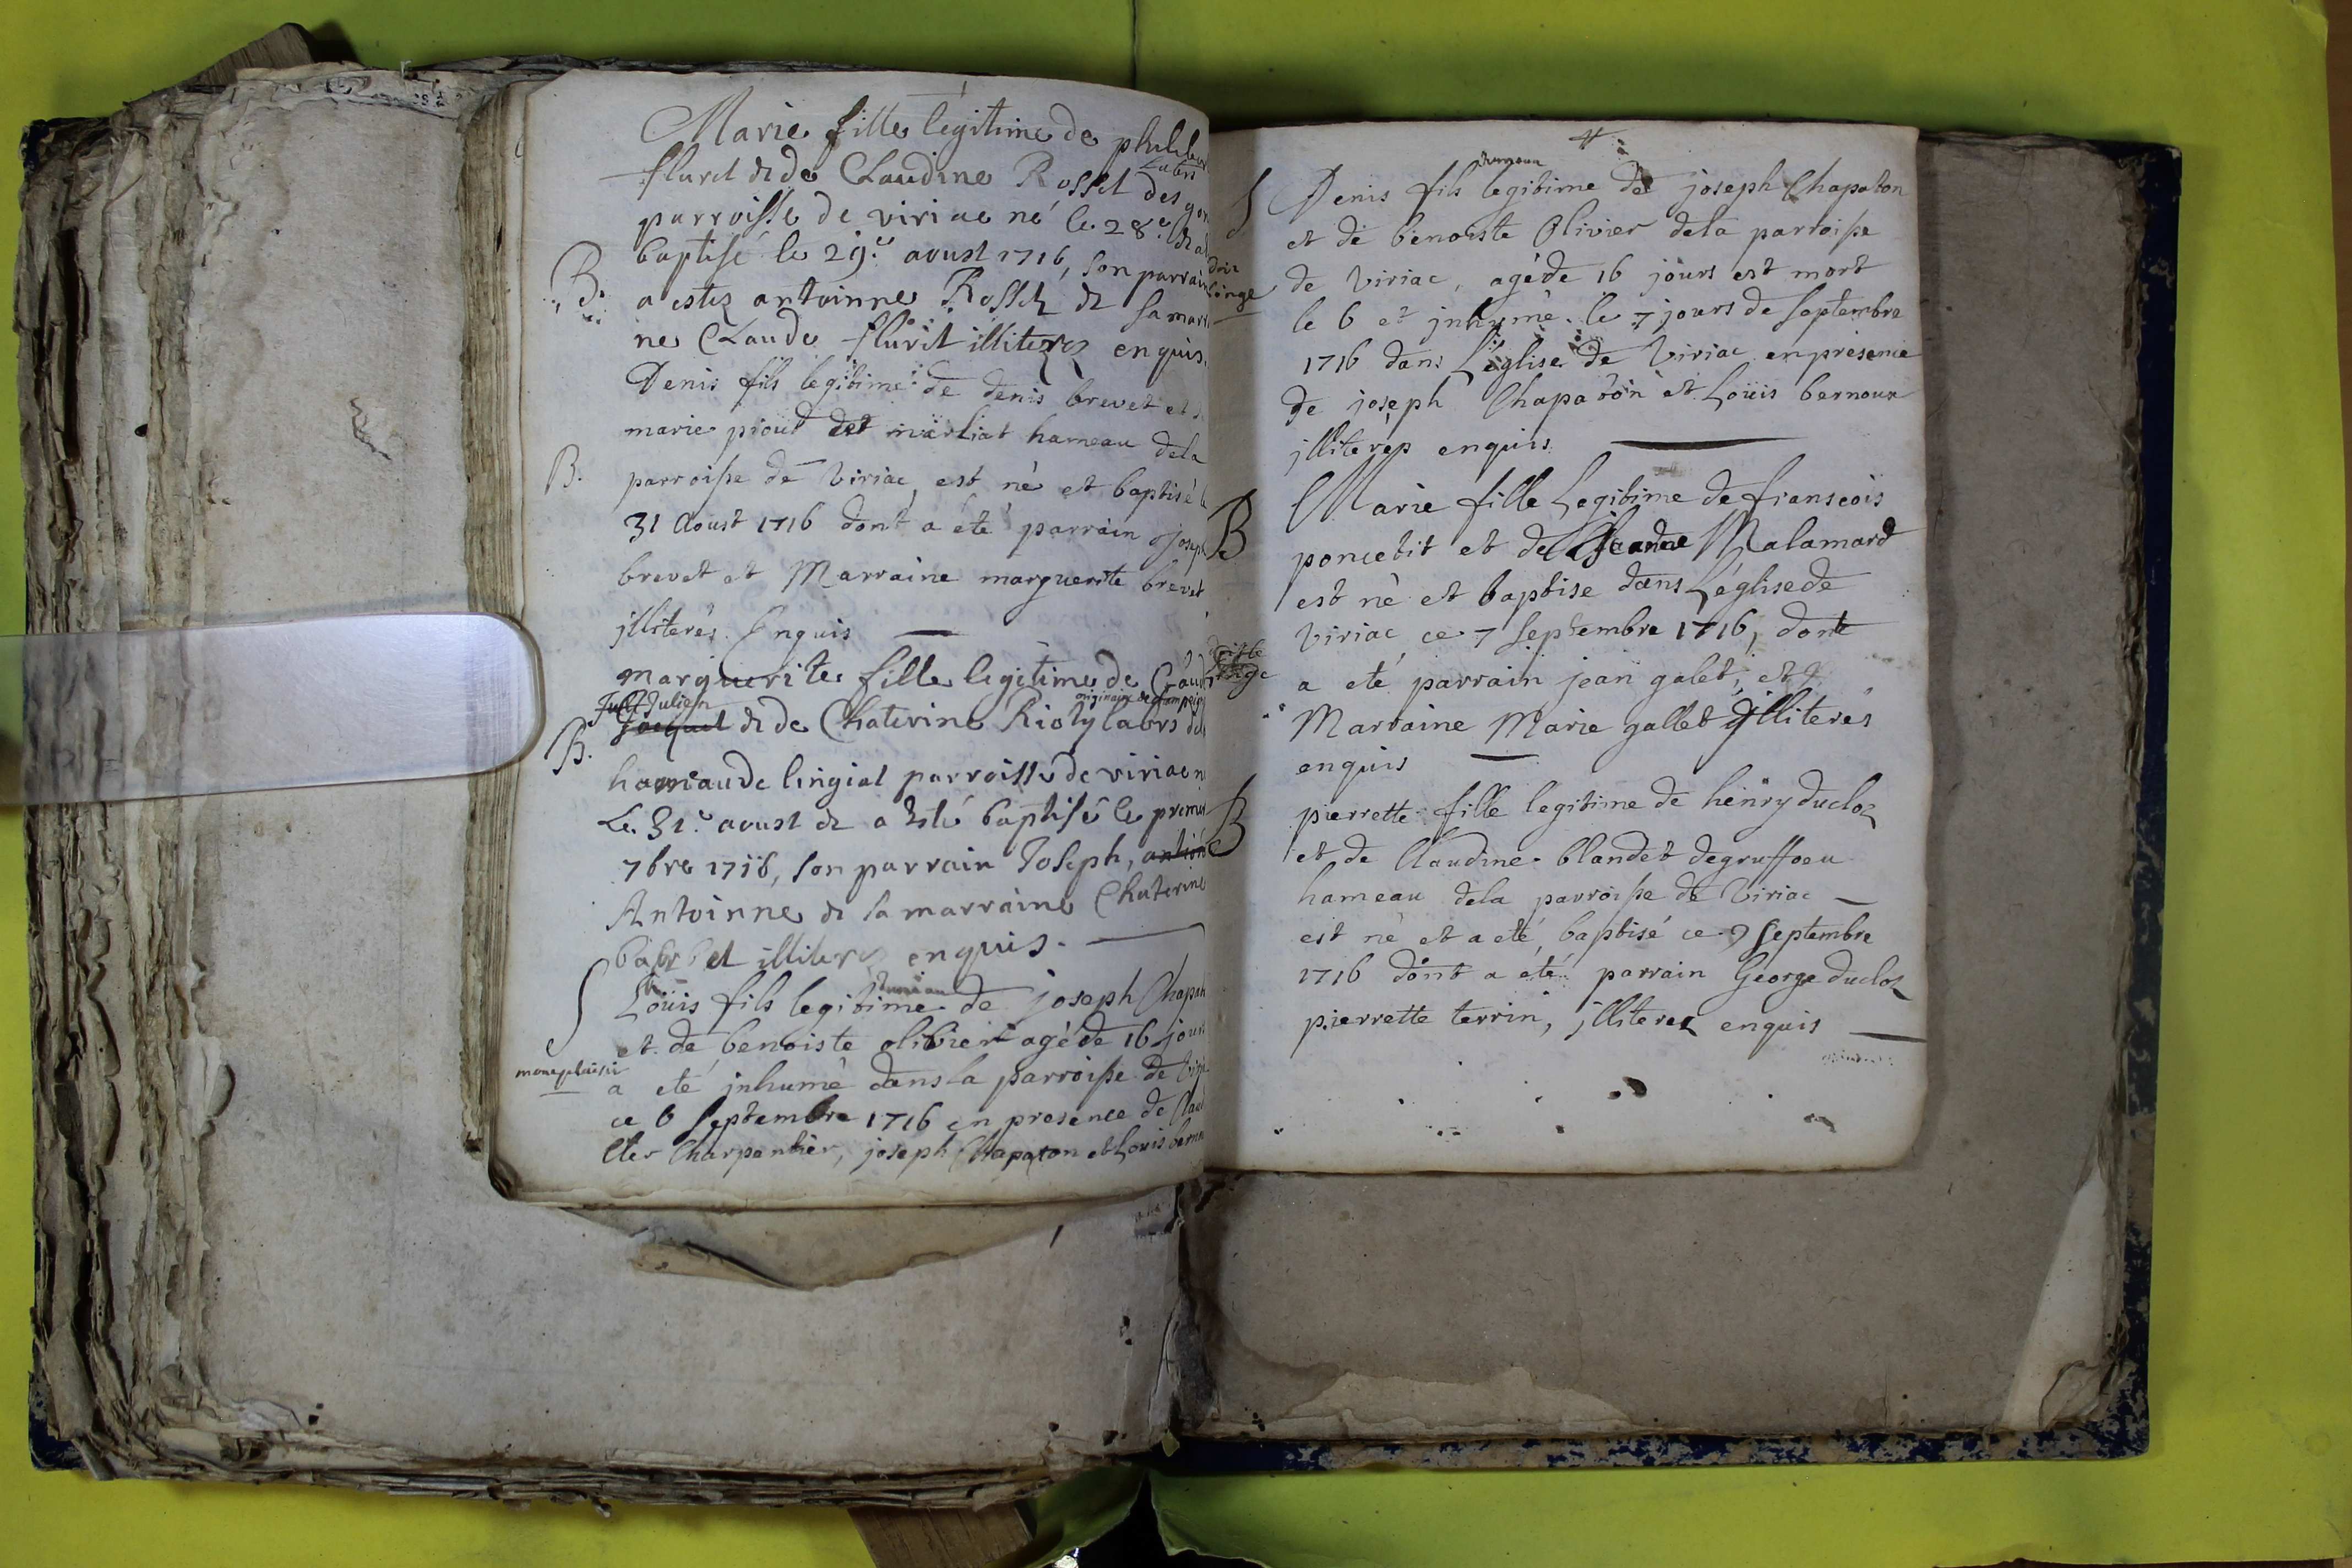 Marie fille legitime de philiber
fluret & de Claudine Rosset labrs des gon
parroisse de viriac né le 28e. & a
B. baptisé le 29e. avust 1716, son parrain
a estez antoinne Rosset & sa marr
ne Claude flurit illiterez enquis.
Denis fils legitime de denis brevet et d
marie piout det marliat hameau dela
B. parroisse de Viriac, est né et baptisé le
31 Aoust 1716 dont a été parrain joseph
brevet et Marraine marguerite brevet
jlliterés Enquis
marguerite fille legitime de Claud
Julien originaire de
B. Jacquet & de Chaterine Rioly labrs del
hameau de lingiat parroisse de viriac n
Le 31e. avust & a esté baptisé le premier
7bre 1716, son parrain Joseph, antoin
Antoinne & sa marraine Chaterine
barbet illiterez enquis.
S Loüis fils legitime jumeau de joseph Chapat
et de benoiste olivier agé de 16 jours
moneplaisir
a eté jnhumé dans la parroisse de Viri
ce 6 Septembre 1716 en presence de Claud
Charpentier, joseph Chapaton et Louis berno
jumeau
S Denis fils legitime de joseph Chapaton
et de benoiste Olivier dela parroisse
de Viriac, agé de 16 jours est mort
le 6 et jnhumé le 7 jours de Septembre
1716 dans L'église de Viriac en presence
de joseph Chapaton et Loüis bernoux
jlliterés enquis
Marie fille Legitime de franseois
B poncetit et de Jeanne Malamard
est né et baptise dans L'église de
Viriac ce 7 Septembre 1716, dont
a eté parrain jean galet, et
Marraine Marie gallet jlliterés
enquis
pierrette fille legitime de henry ducloz
B et de Claudine blandet degruffoeu
hameau dela parroisse de Viriac
est né et a eté baptisé ce 9 Septembre
1716 dont a été parrain George ducloz
pierrette terrin, jlliterez enquis